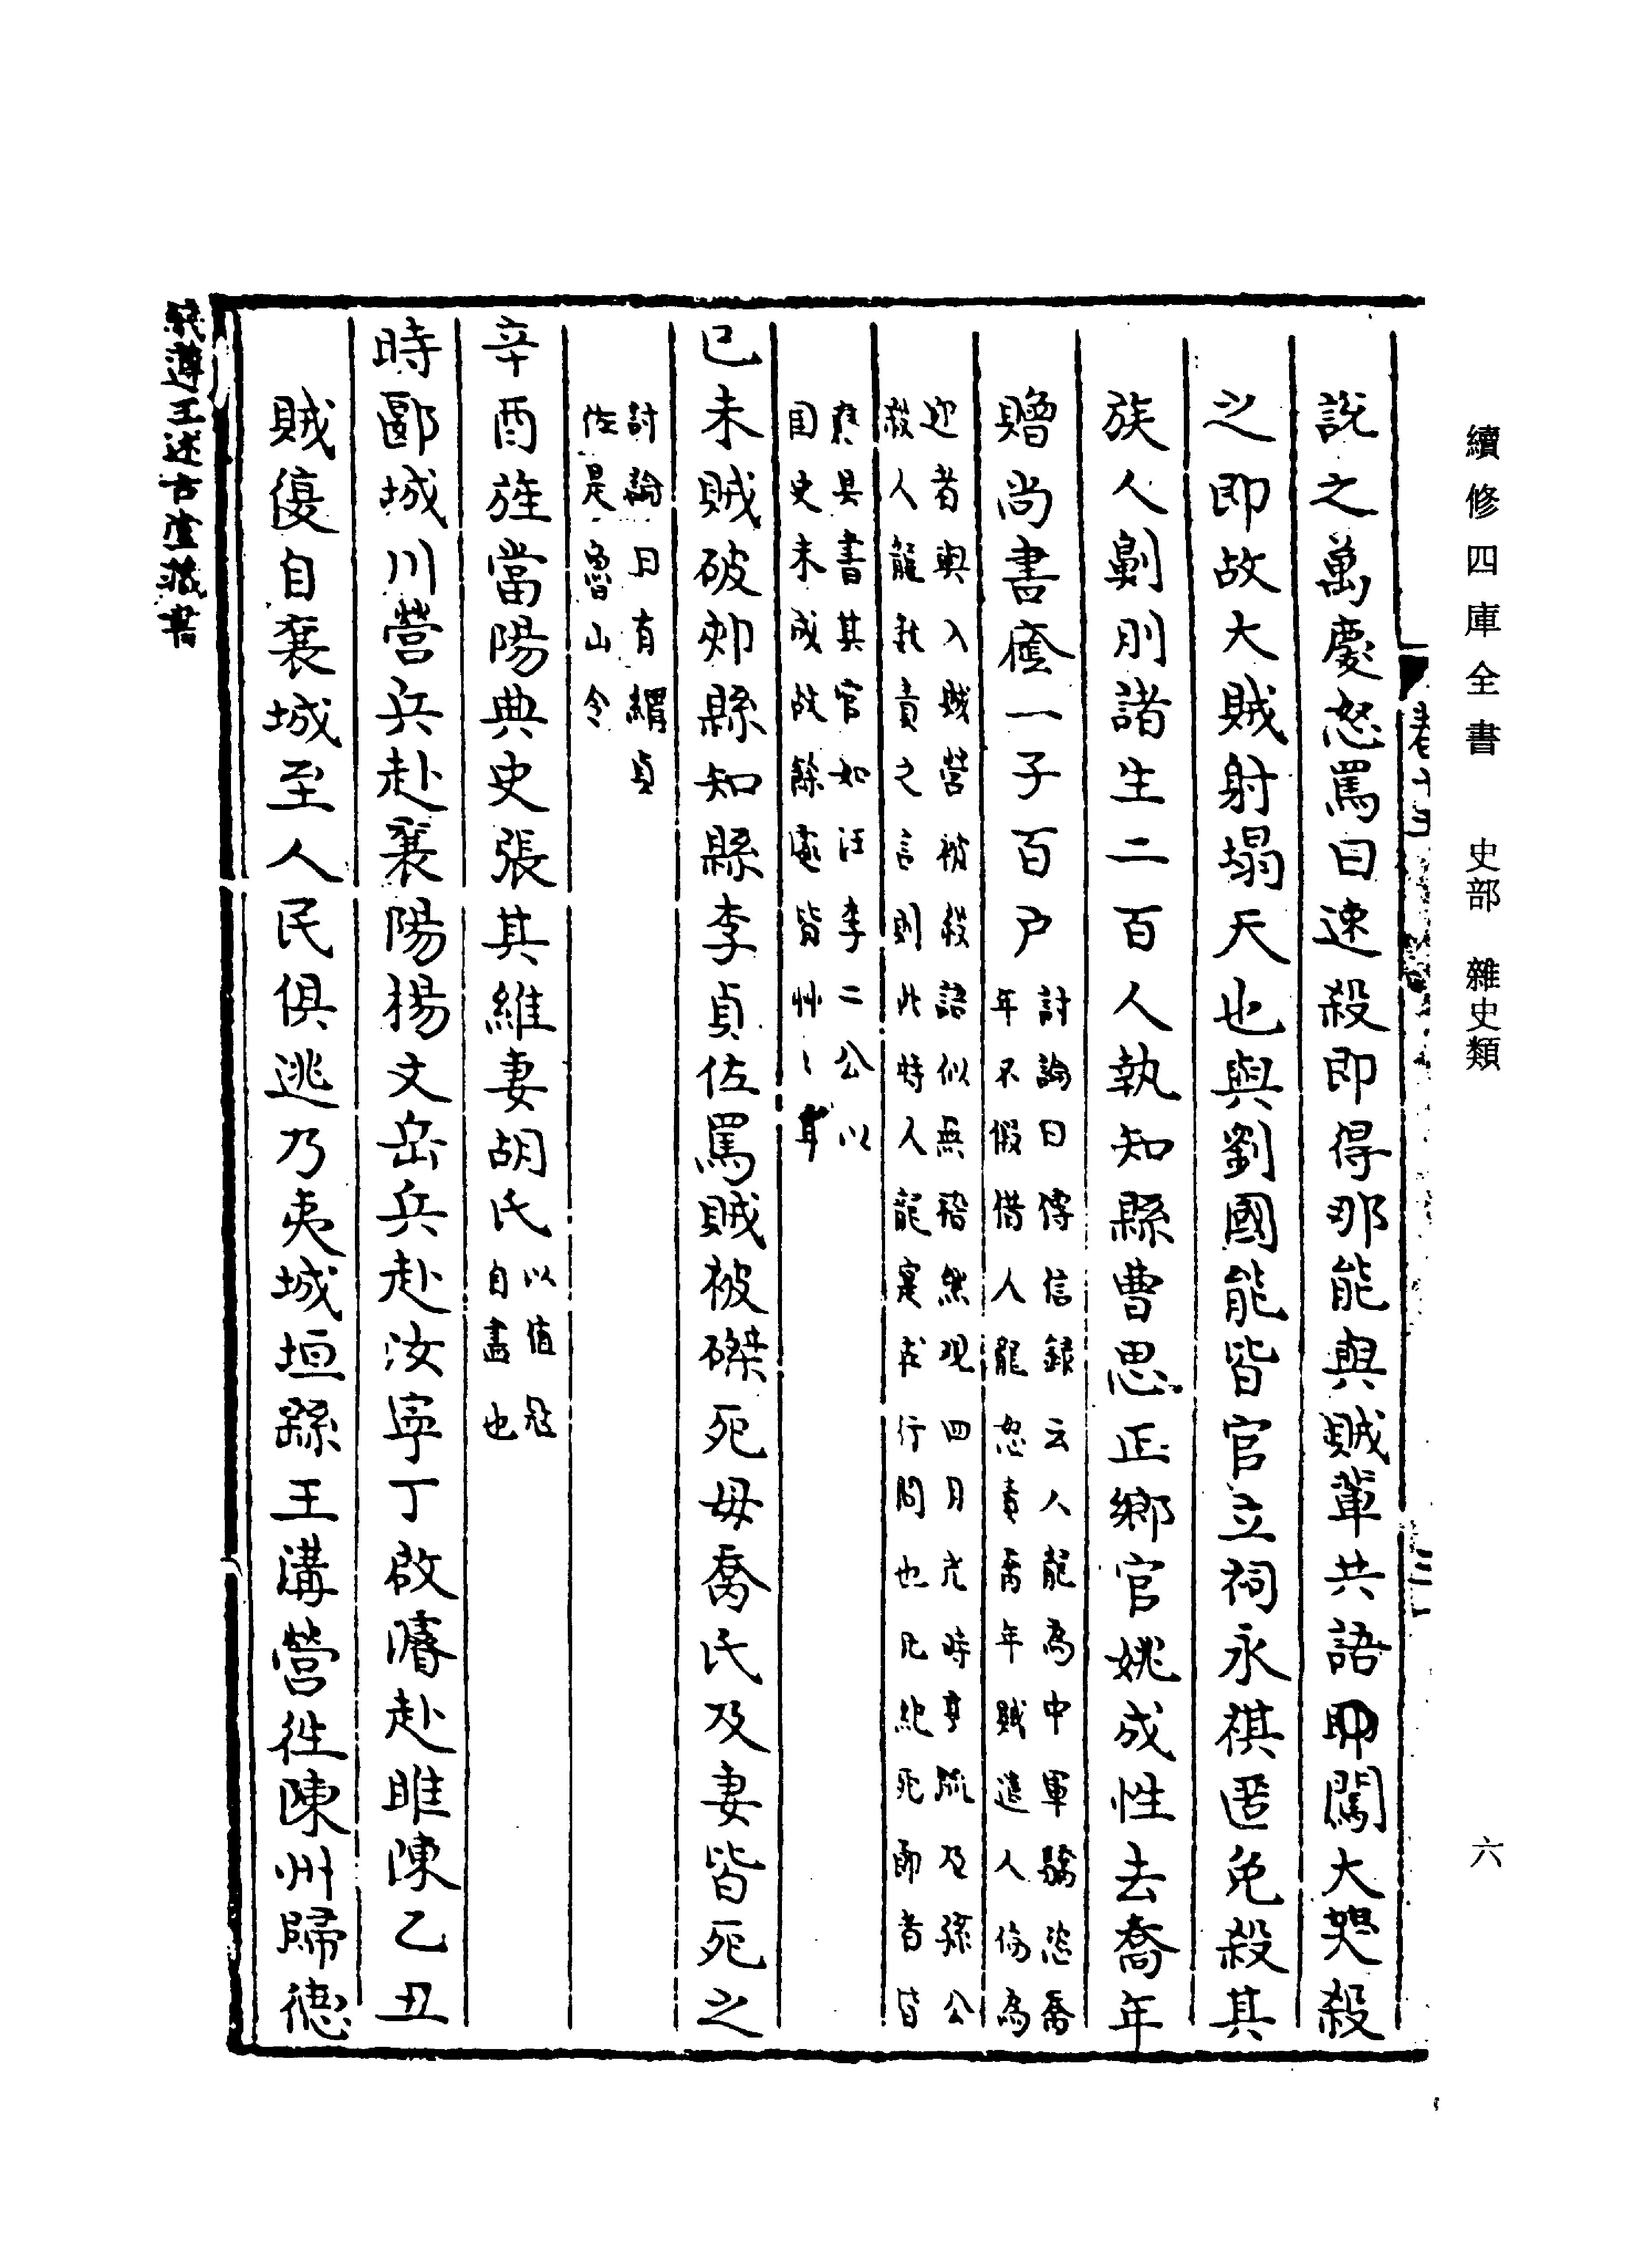 續修四庫全書 史部 雜史類
六
說之萬慶怒罵曰速殺即得那能與賊輩共語耶闖大哭殺
之即故大賊射塌天也與劉國能皆官立祠永祺匿免殺其
族人劓刖諸生二百人執知縣曹思正鄉官姚成性去喬年
贈尚書廕一子百戶
討論曰傳信錄云人龍為中軍驕恣喬
年不假借人龍忽責喬年賊遣人偽為
迎者與入賊營被殺語似無稽然觀四月亢時亨疏及孫公
殺人龍我責之言則此時人龍寔在行間也凡紀死節者皆
具書其官如汪李二公以
國史未成故餘處皆艸〻耳
已未賊破郟縣知縣李貞佐罵賊被磔死母喬氏及妻皆死之
討論曰有謂貞
佐是魯山令
辛酉旌當陽典史張其維妻胡氏
以值寇
自盡也
時郾城川營兵赴襄陽楊文岳兵赴汝寧丁啟睿赴睢陳乙丑
賊復自襄城至人民俱逃乃夷城垣繇王溝營徃陳州歸德
錢遵王述古堂藏書